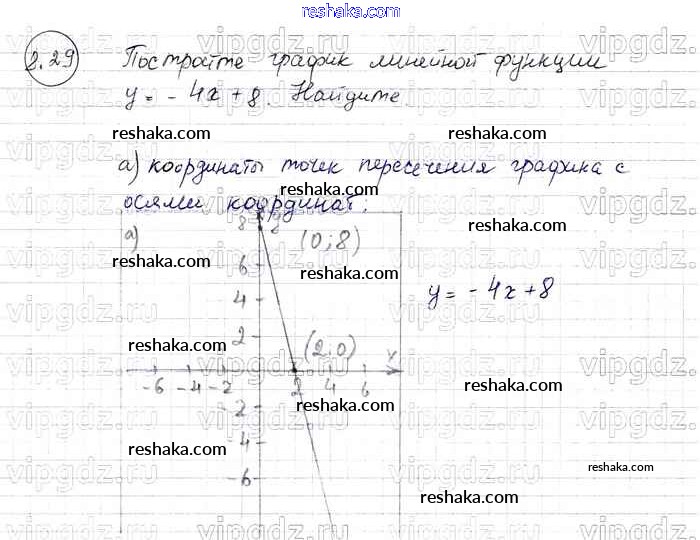 reshaka.com
2.29 Постройте график линейной функции
y = - 4x + 8. Найдите
reshaka.com reshaka.com
а) координаты точек пересечения графика с
reshaka.com
осями координат:
reshaka.com
а) 8 8 (0; 8)
reshaka.com
6
reshaka.com
y = - 4x + 8
4
2
reshaka.com
(2; 0) x
-6 -4 -2 2 4 6
reshaka.com
-2
reshaka.com
-4
reshaka.com
reshaka.com
-6
reshaka.com
vipgdz.ru